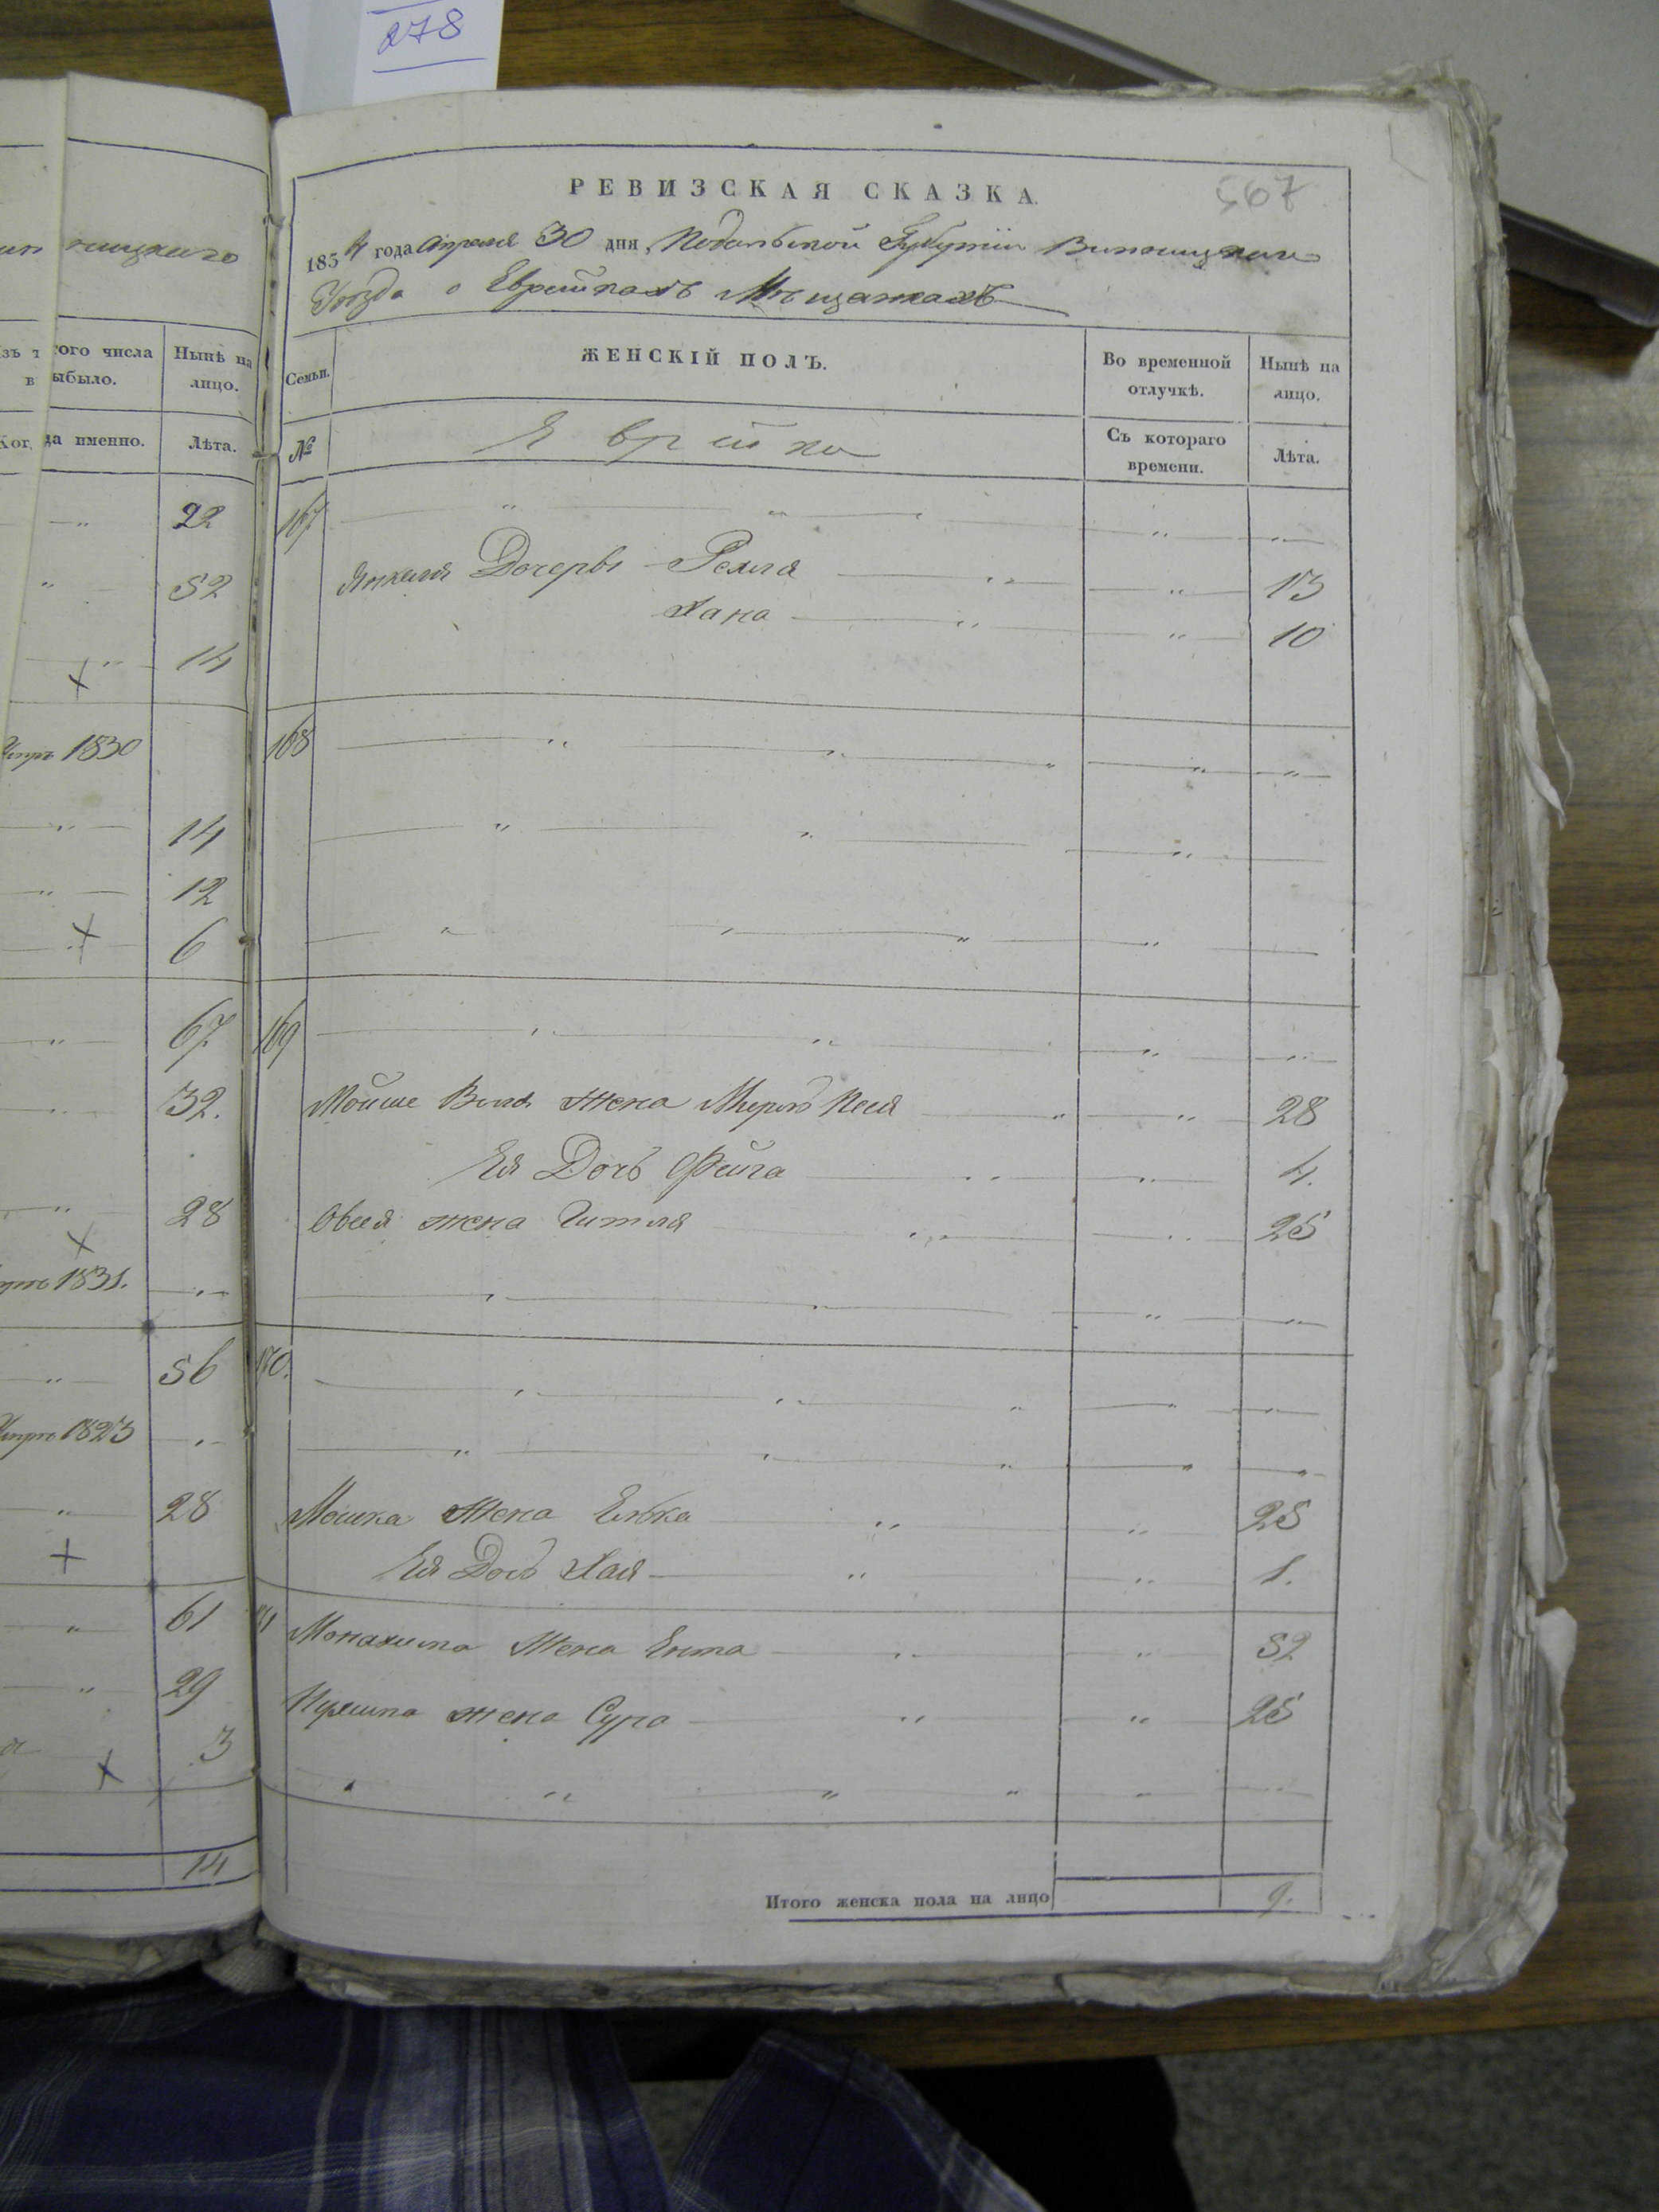 278
РЕВИЗСКАЯ СКАЗКА.
567
1854 года Апреля 30 дня, Подольской Губерніи Винницкаго
Уѣзда о Еврейкахъ Мѣщанкахъ
ницкаго
того числа
ыбыло.
Нынѣ на
лицо.
да именно.
Лѣта.
Семьи.
ЖЕНСКІЙ ПОЛЪ.
Во временной
отлучкѣ.
Нынѣ на
лицо.
№
Еврейки
Съ котораго
времени.
Лѣта.
22
167
52
Янкеля Дочерьи Рехля 13
Хана 10
14
1830
168
14
12
6
67
169
32.
Мойше жена Меръ Песя 28
Ея Дочь Фейга 4.
28
Овсея жена Гитля 25
1831.
56
170.
1823
28
Мошка Жена Елька 25
Ея Дочь Хая 1.
61
Монахима Жена Ента 52
29
жена Сура 25
3
14
Итого женска пола на лицо 9.